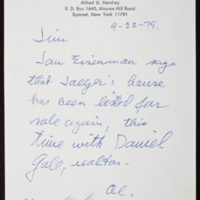 Alfred D. Hershey
R. D. Box 1640, Moores Hill Road
Syosset, New York 11791
9-22-79.
Jim
Jan Eisenman says
that Jaeger's house
has been listed for
sale again, this
time with Daniel
Gale, realtor.
Al.